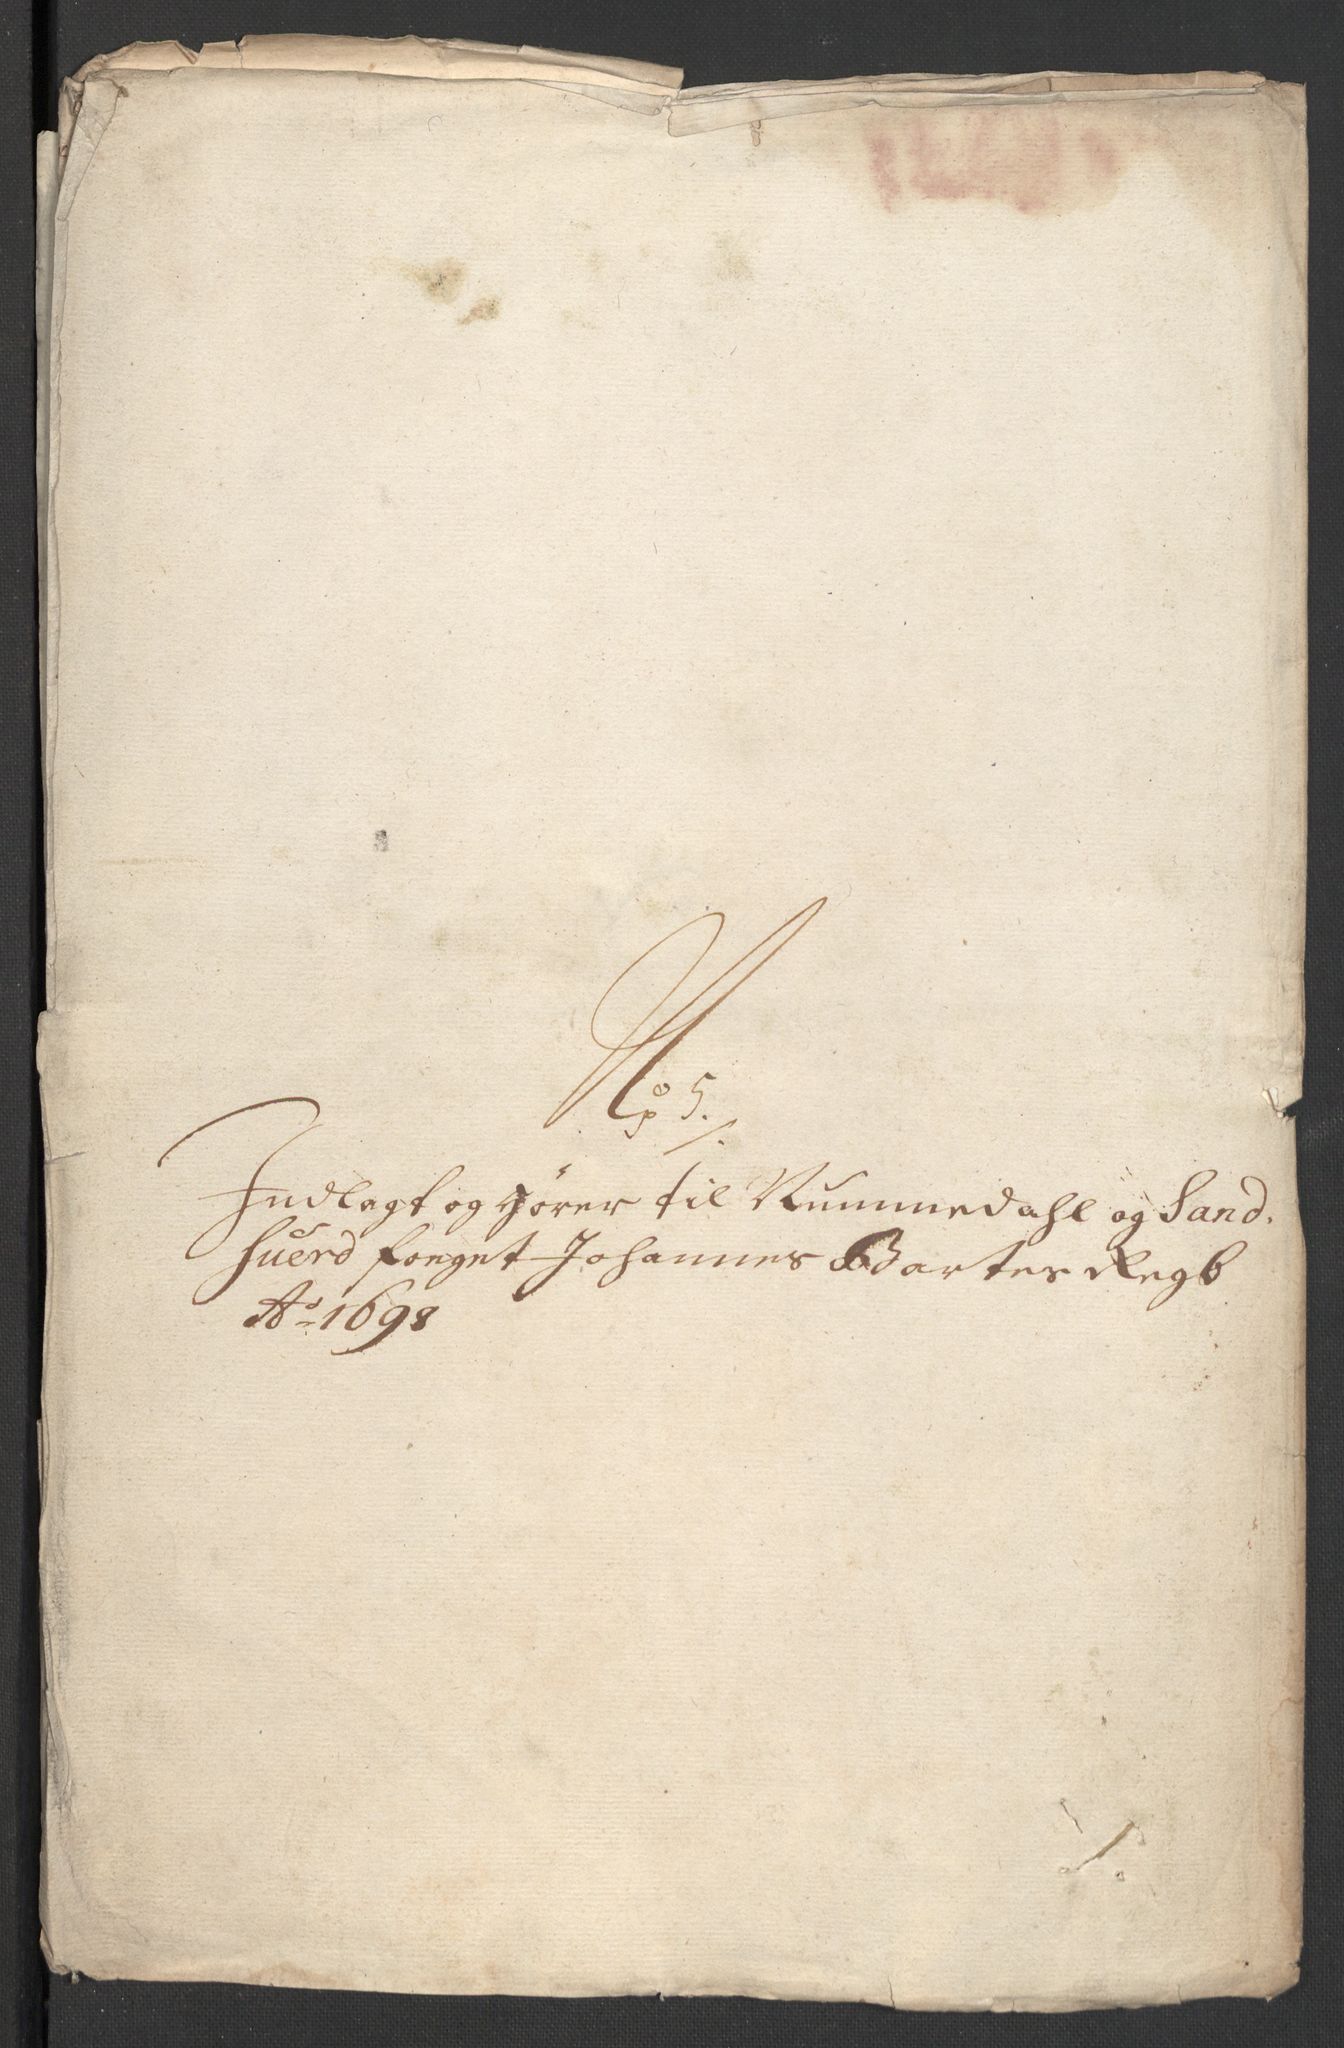 No 5.
Indlagt og hører til Nummedahl og Sand.
huerd fouget Johannes Bartes Regb
Ao 1698